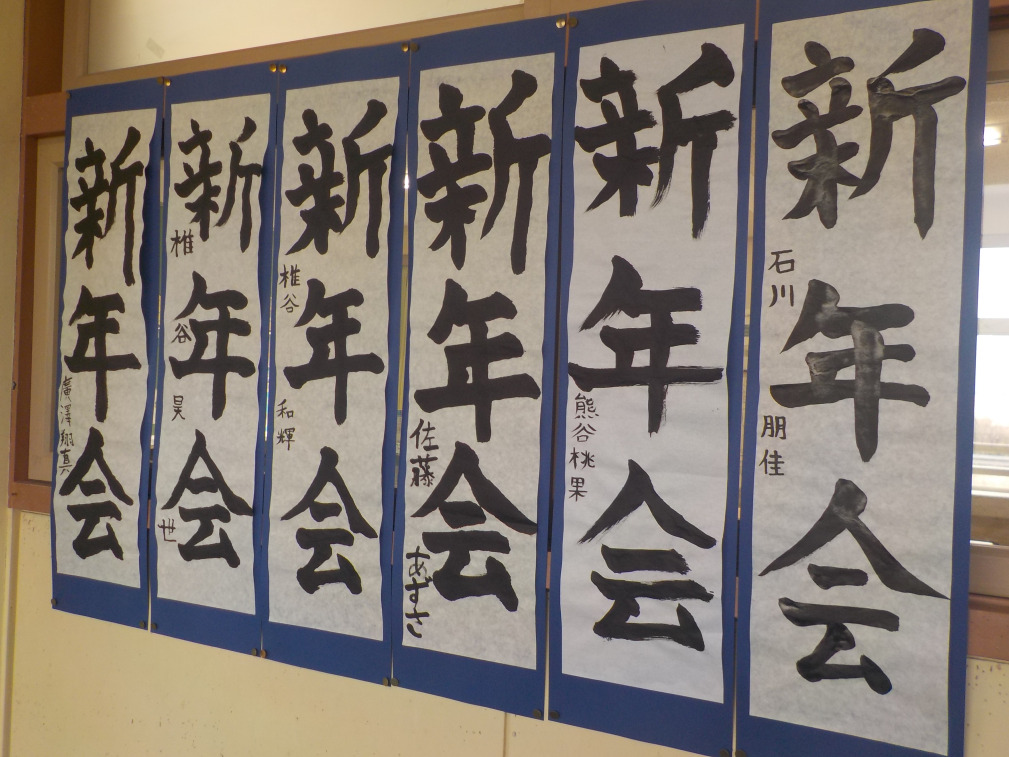 新年会
石川朋佳
新年会
熊谷桃果
新年会
佐藤あずさ
新年会
椎谷和輝
新年会
椎谷昊世
新年会
廣澤翔真